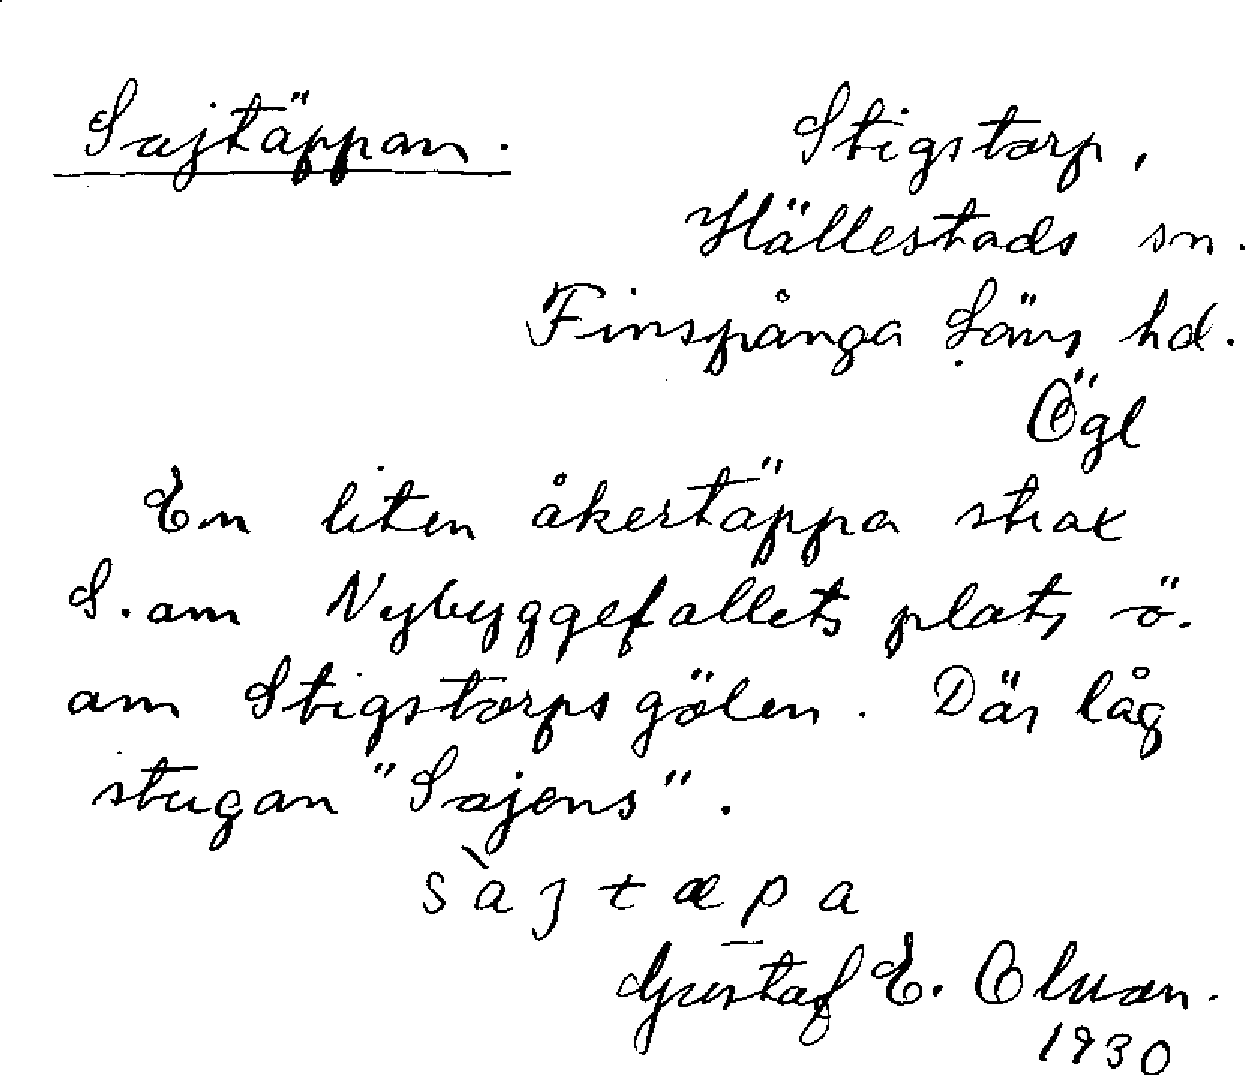 Sajtäppan.
Stigstorp,
Hällestads sn.
Finspånga Läns hd.
Ögl
En liten åkertäppa strax
S. om Nybyggefallets plats ö.
om Stigstorpsgölen. Där låg
stugan "Sajens".
sàjtæpa
Gustaf E.
1930